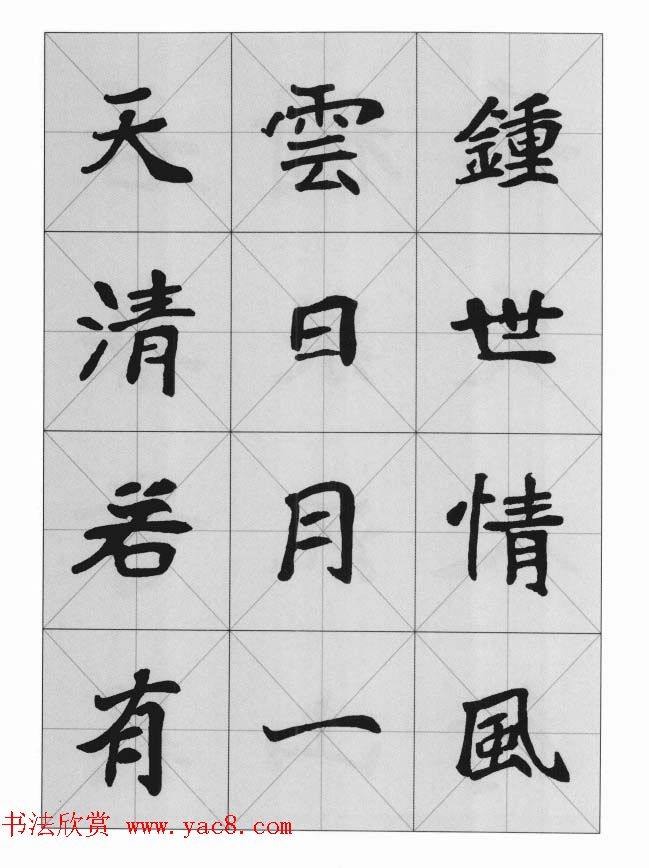 鍾世情風
雲日月一
天清若有
书法欣赏 www.yac8.com